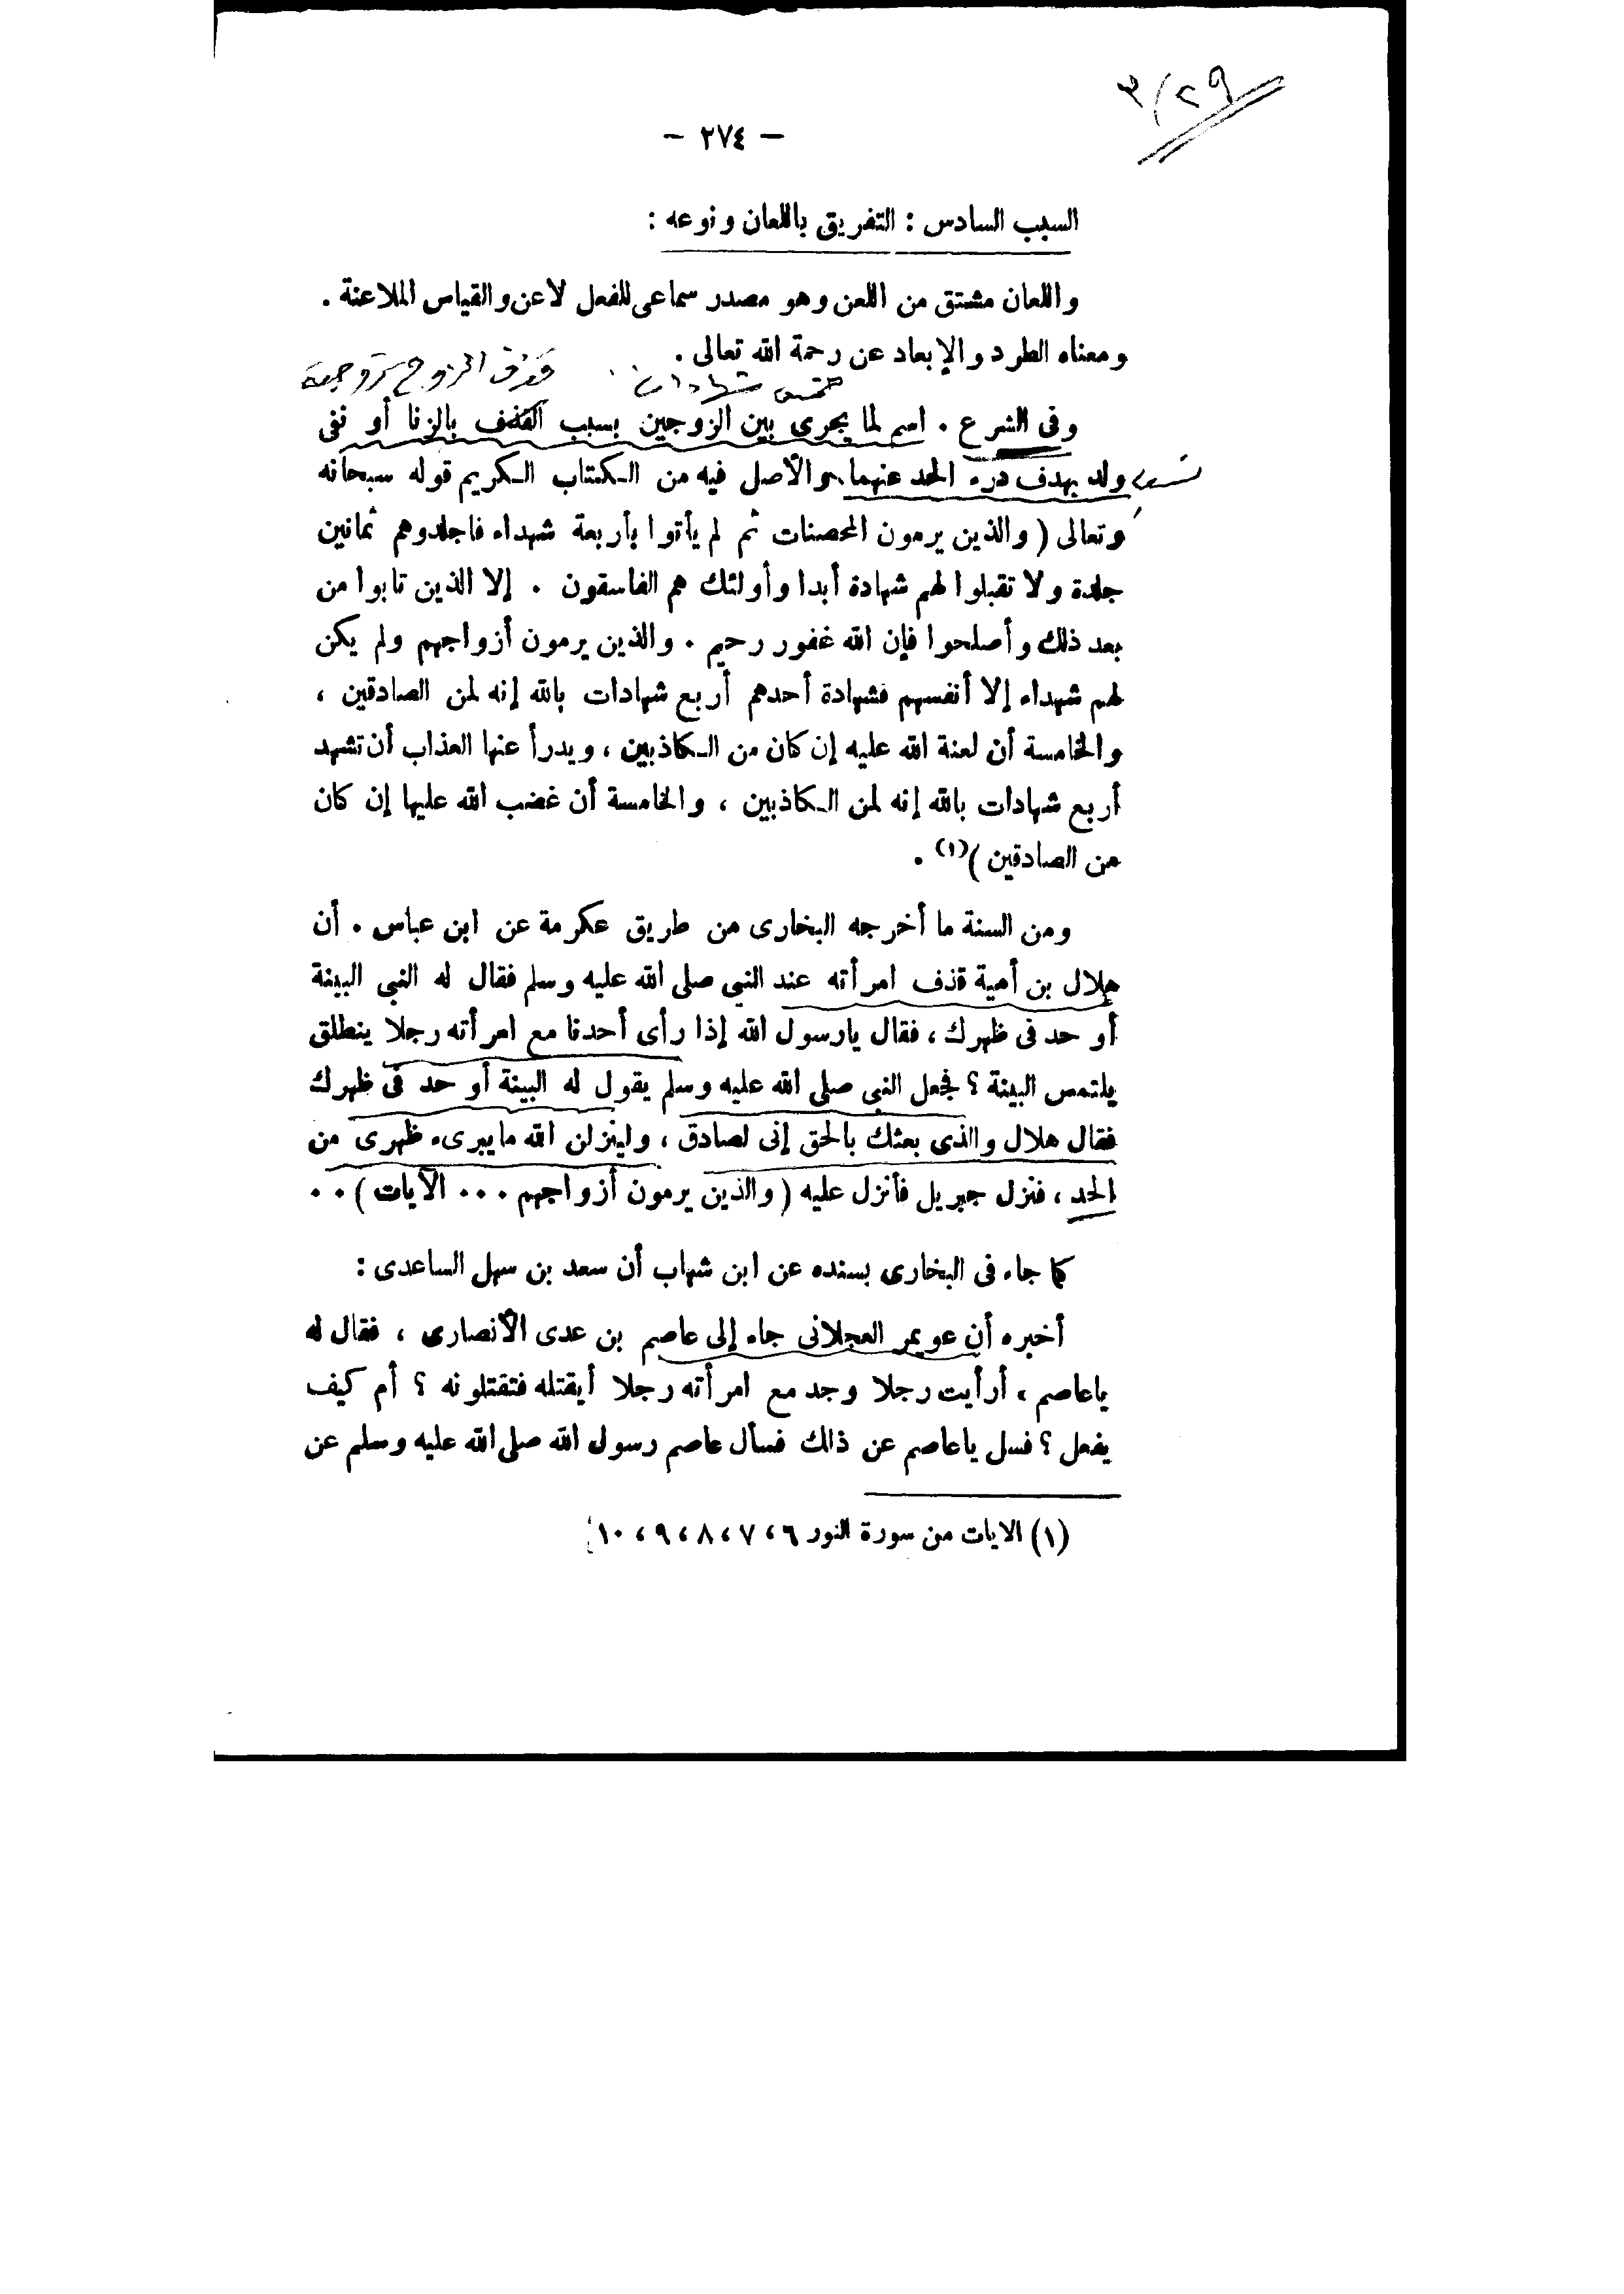 ٢٩ / ٣
— ٢٧٤ —
السبب السادس : التفريق باللعان ونوعه :
واللعان مشتق من اللعن وهو مصدر سماعى للفعل لاعن والقياس الملاعنة .
ومعناه الطرد والإبعاد عن رحمة الله تعالى .
خمس شهادات قذف الزوج زوجته
وفى الشرع . اسم لما يجرى بين الزوجين بسبب القذف بالزنا أو نفى
ولد بهدف درء الحد عنهما، والأصل فيه من الكتاب الكريم قوله سبحانه
وتعالى ( والذين يرمون المحصنات ثم لم يأتوا بأربعة شهداء فاجلدوهم ثمانين
جلدة ولا تقبلوا لهم شهادة أبدا وأولئك هم الفاسقون . إلا الذين تابوا من
بعد ذلك وأصلحوا فإن الله غفور رحيم . والذين يرمون أزواجهم ولم يكن
لهم شهداء إلا أنفسهم فشهادة أحدهم أربع شهادات بالله إنه لمن الصادقين ،
والخامسة أن لعنة الله عليه إن كان من الكاذبين ، ويدرأ عنها العذاب أن تشهد
أربع شهادات بالله إنه لمن الكاذبين ، والخامسة أن غضب الله عليها إن كان
من الصادقين )(١) .
ومن السنة ما أخرجه البخارى من طريق عكرمة عن ابن عباس . أن
هلال بن أمية قذف امرأته عند النبى صلى الله عليه وسلم فقال له النبى البينة
أو حد فى ظهرك ، فقال يارسول الله إذا رأى أحدنا مع امرأته رجلا ينطلق
يلتمس البينة ؟ فجعل النبى صلى الله عليه وسلم يقول له البينة أو حد فى ظهرك
فقال هلال والذى بعثك بالحق إنى لصادق ، ولينزلن الله مايبرىء ظهرى من
الحد ، فنزل جبريل فأنزل عليه ( والذين يرمون أزواجهم ... الآيات ) . .
كما جاء فى البخارى بسنده عن ابن شهاب أن سعد بن سهل الساعدى :
أخبره أن عويمر العجلانى جاء إلى عاصم بن عدى الأنصارى ، فقال له
ياعاصم ، أرأيت رجلا وجد مع امرأته رجلا أيقتله فتقتلونه ؟ أم كيف
يفعل ؟ فسل ياعاصم عن ذالك فسأل عاصم رسول الله صلى الله عليه وسلم عن
(١) الايات من سورة النور ٦ ، ٧ ، ٨ ، ٩ ، ١٠